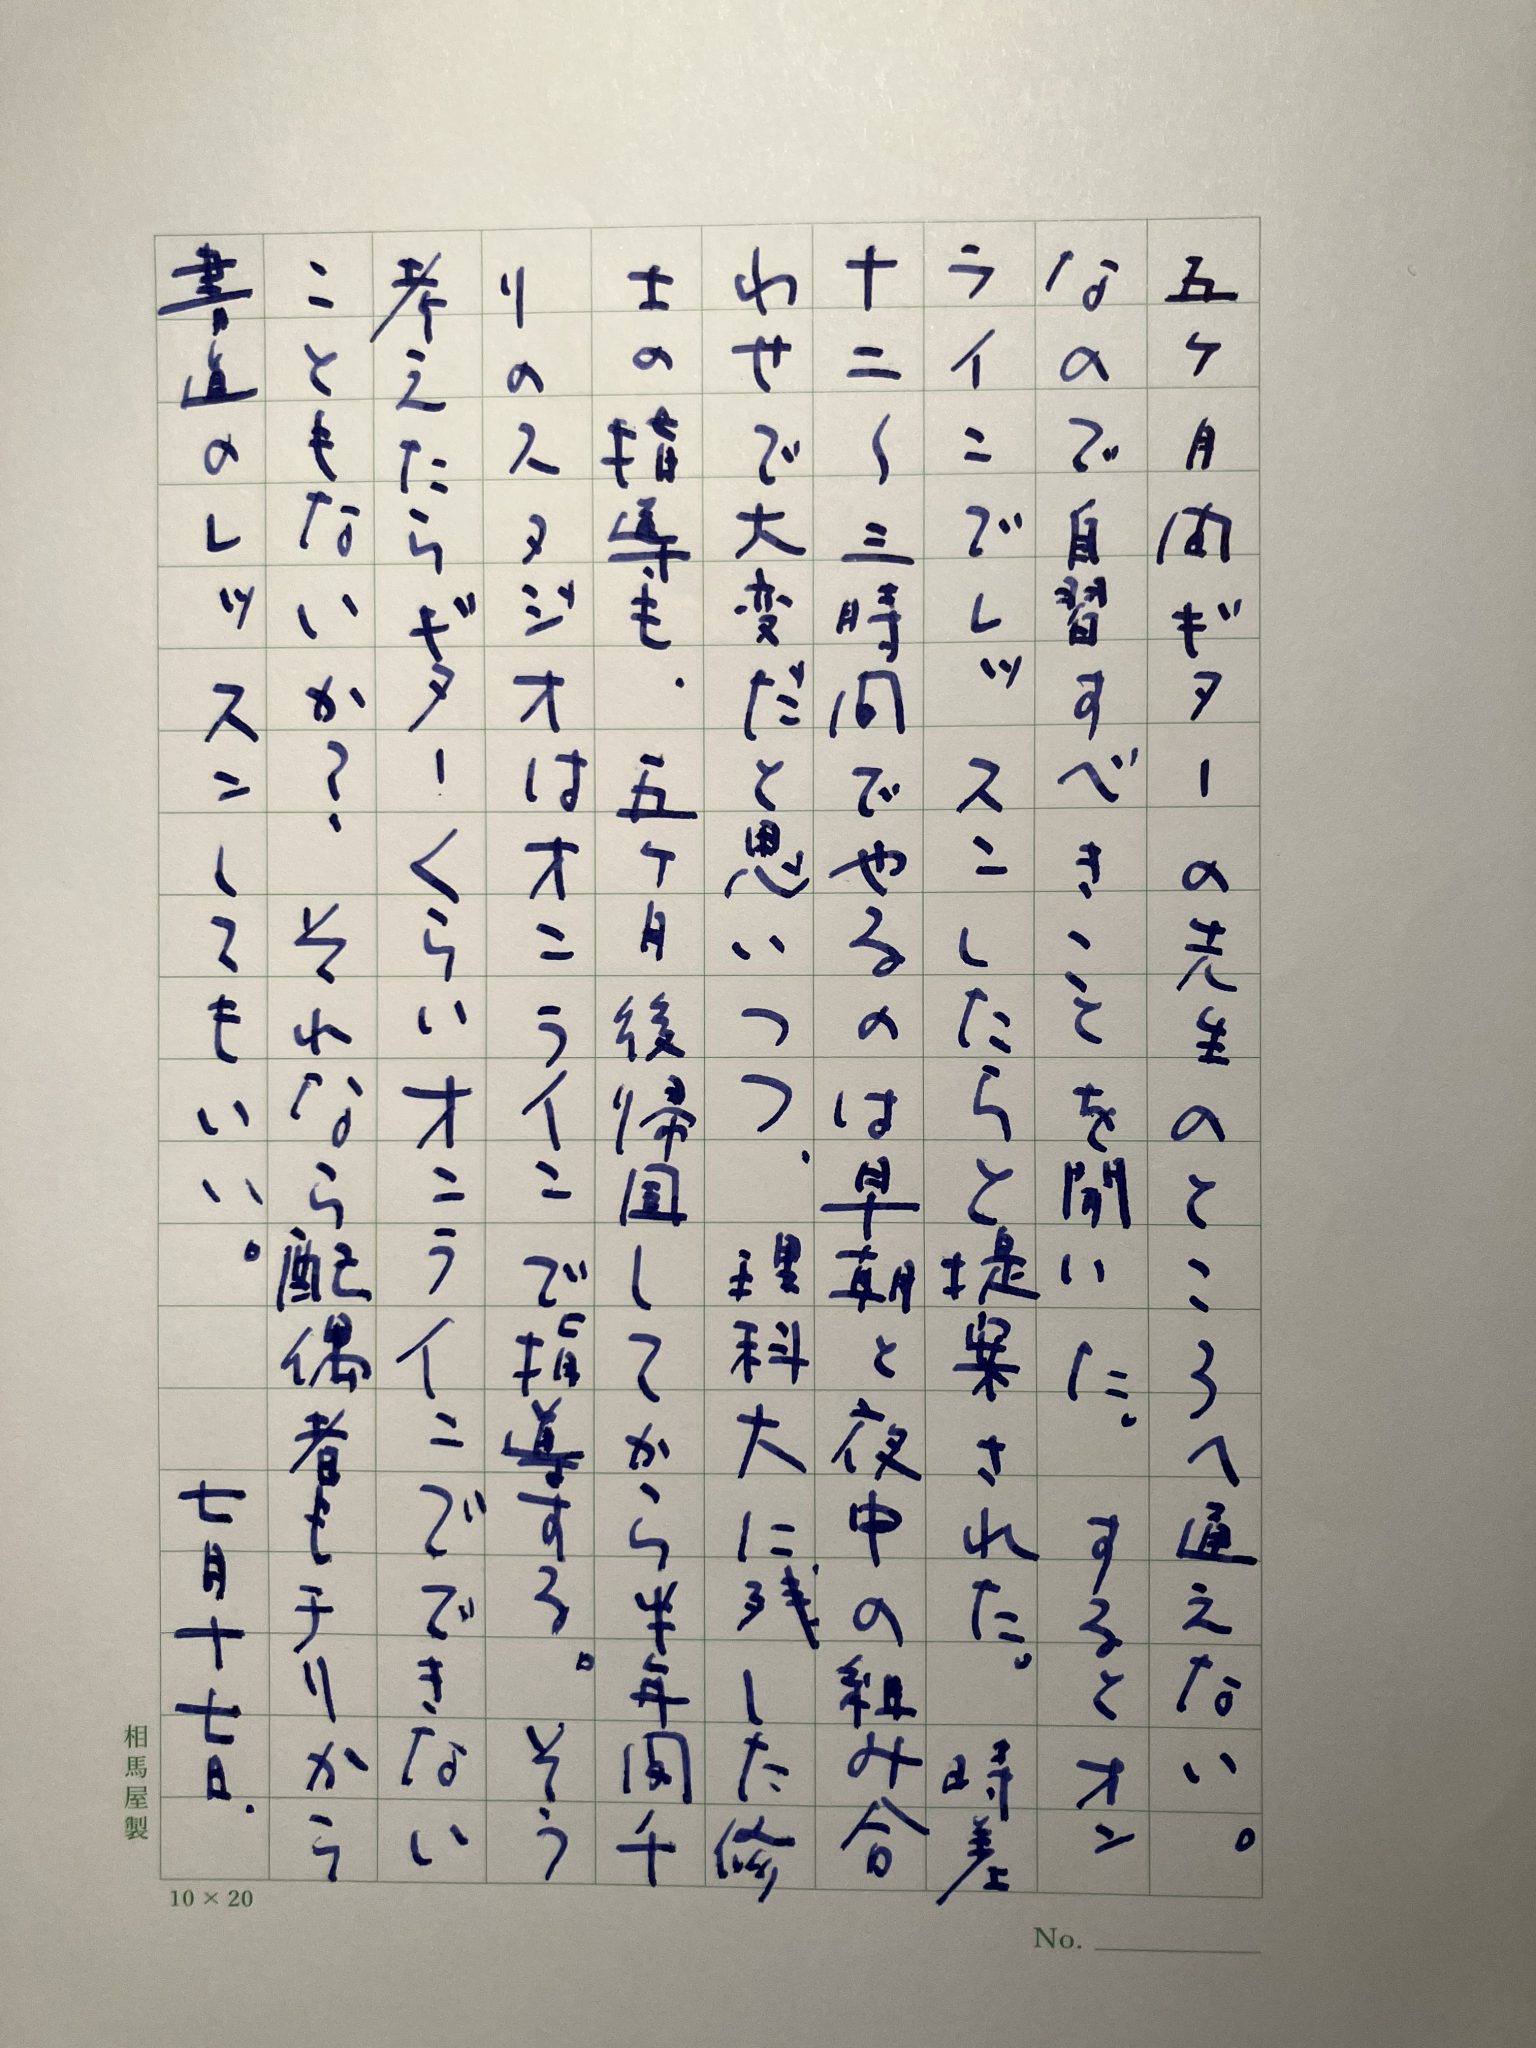 五ヶ月間ギターの先生のところへ通えない。
なので自習すべきことを聞いた。するとオン
ラインでレッスンしたらと提案された。時差
十二〜三時間でやるのは早朝と夜中の組み合
わせで大変だと思いつつ、理科大に残した修
士の指導も、五ヶ月後帰国してから半年間千
りのスタジオはオンラインで指導する。そう
考えたらギターくらいオンラインでできない
こともないか?、それなら配偶者もチリから
書道のレッスンしてもいい。 七月十七日、
相馬屋製
10×20
No.